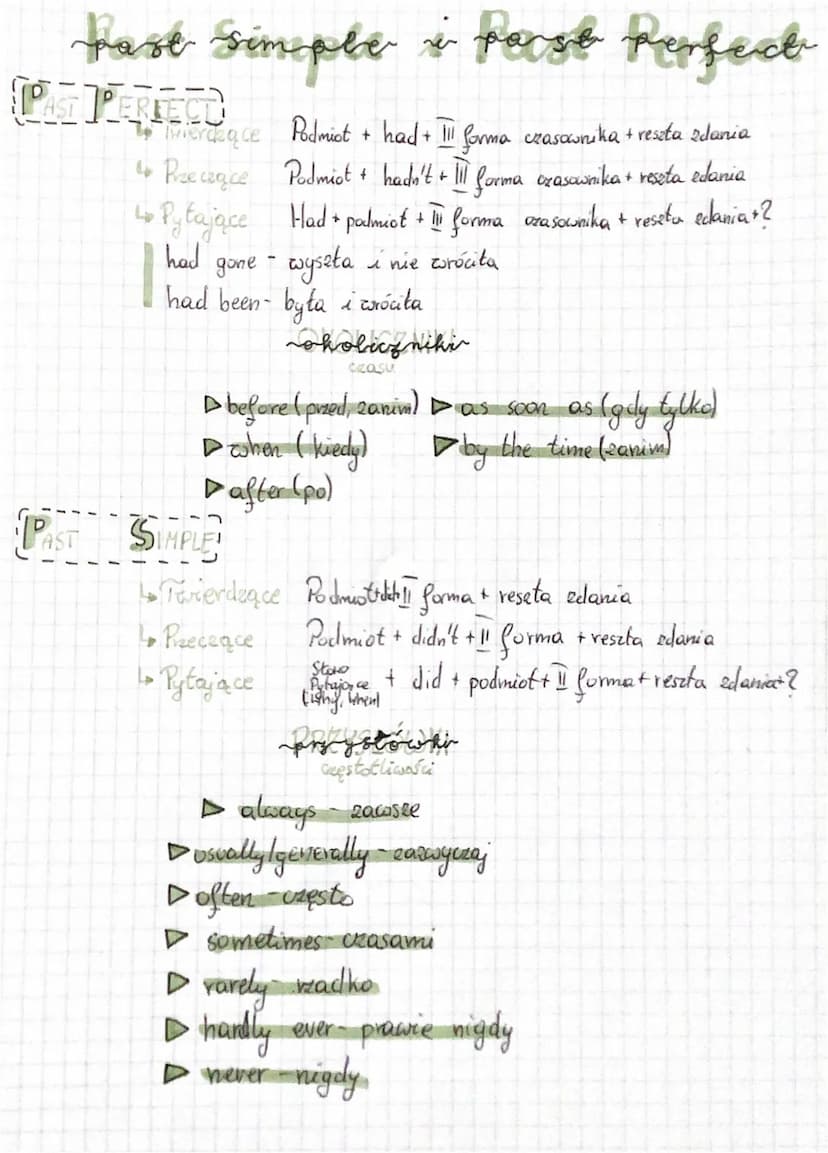 Past Simple i Past Perfect
PAST PERFECT
↳ Twierdzące Podmiot + had + III forma czasownika + reszta zdania
↳ Przeczące Podmiot + hadn't + III forma czasownika + reszta zdania
↳ Pytające Had + podmiot + III forma czasownika + reszta zdania + ?
had gone - wyszła i nie wróciła
had been - była i wróciła
okoliczniki
czasu
before (przed, zanim) as soon as (gdy tylko)
when (kiedy) by the time (zanim)
after (po)
PAST SIMPLE
↳ Twierdzące Podmiot + II forma + reszta zdania
↳ Przeczące Podmiot + didn't + II forma + reszta zdania
↳ Pytające Słowo Pytające (why, when) + did + podmiot + II forma + reszta zdania + ?
przysłówki
częstotliwości
always - zawsze
usually/generally - zazwyczaj
often - często
sometimes - czasami
rarely - rzadko
hardly ever - prawie nigdy
never - nigdy